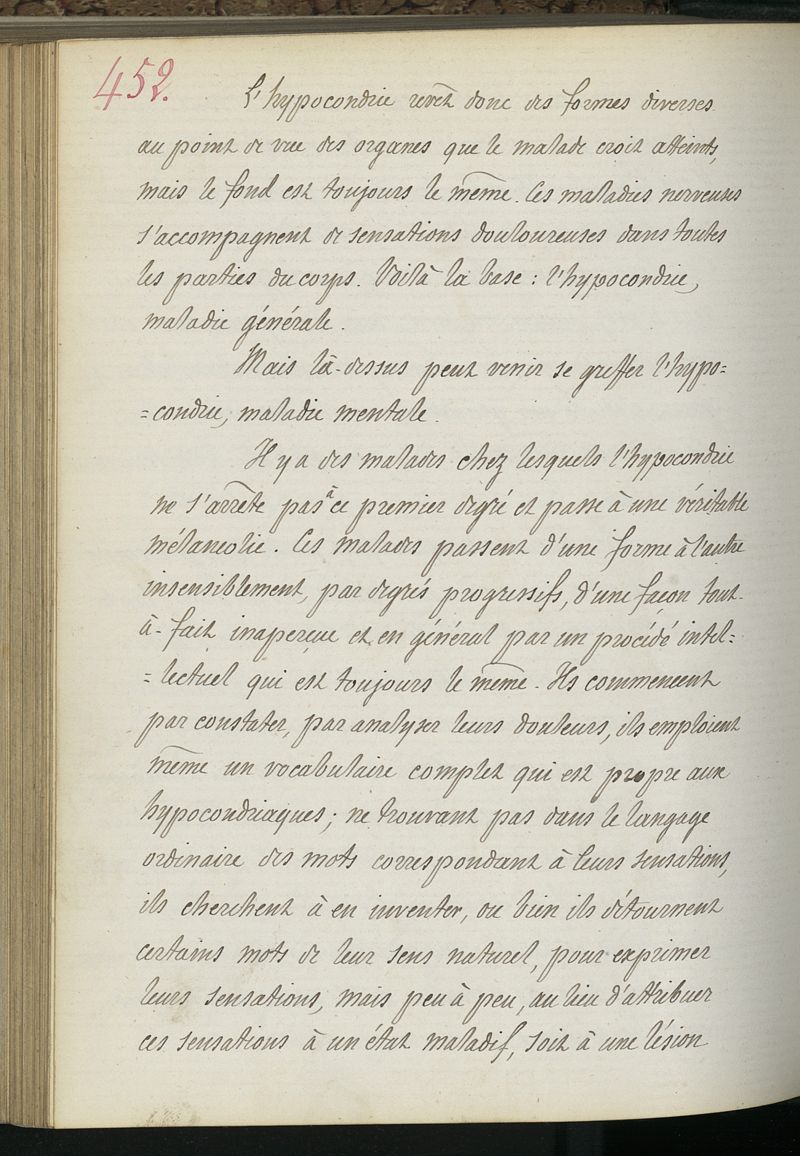 452.
L'hypocondrie revêt donc des formes diverses
au point de vue des organes que le malade croit atteints,
mais le fond est toujours le même. Ces maladies nerveuses
s'accompagnent de sensations douloureuses dans toutes
les parties du corps. Voilà la base : l'hypocondrie,
maladie générale.
Mais là-dessus peut venir se greffer l'hypo=
=condrie, maladie mentale.
Il y a des malades chez lesquels l'hypocondrie
ne s'arrête pas à ce premier degré et passe à une véritable
mélancolie. Ces malades passent d'une forme à l'autre
insensiblement, par degrés progressifs, d'une façon tout-
à-fait inaperçue et en général par un procédé intel=
=lectuel qui est toujours le même. Ils commencent
par constater, par analyser leurs douleurs, ils emploient
même un vocabulaire complet qui est propre aux
hypocondriaques ; ne trouvant pas dans le langage
ordinaire des mots correspondant à leurs sensations,
ils cherchent à en inventer, ou bien ils détournent
certains mots de leur sens naturel, pour exprimer
leurs sensations, mais peu à peu, au lieu d'attribuer
ces sensations à un état maladif, soit à une lésion